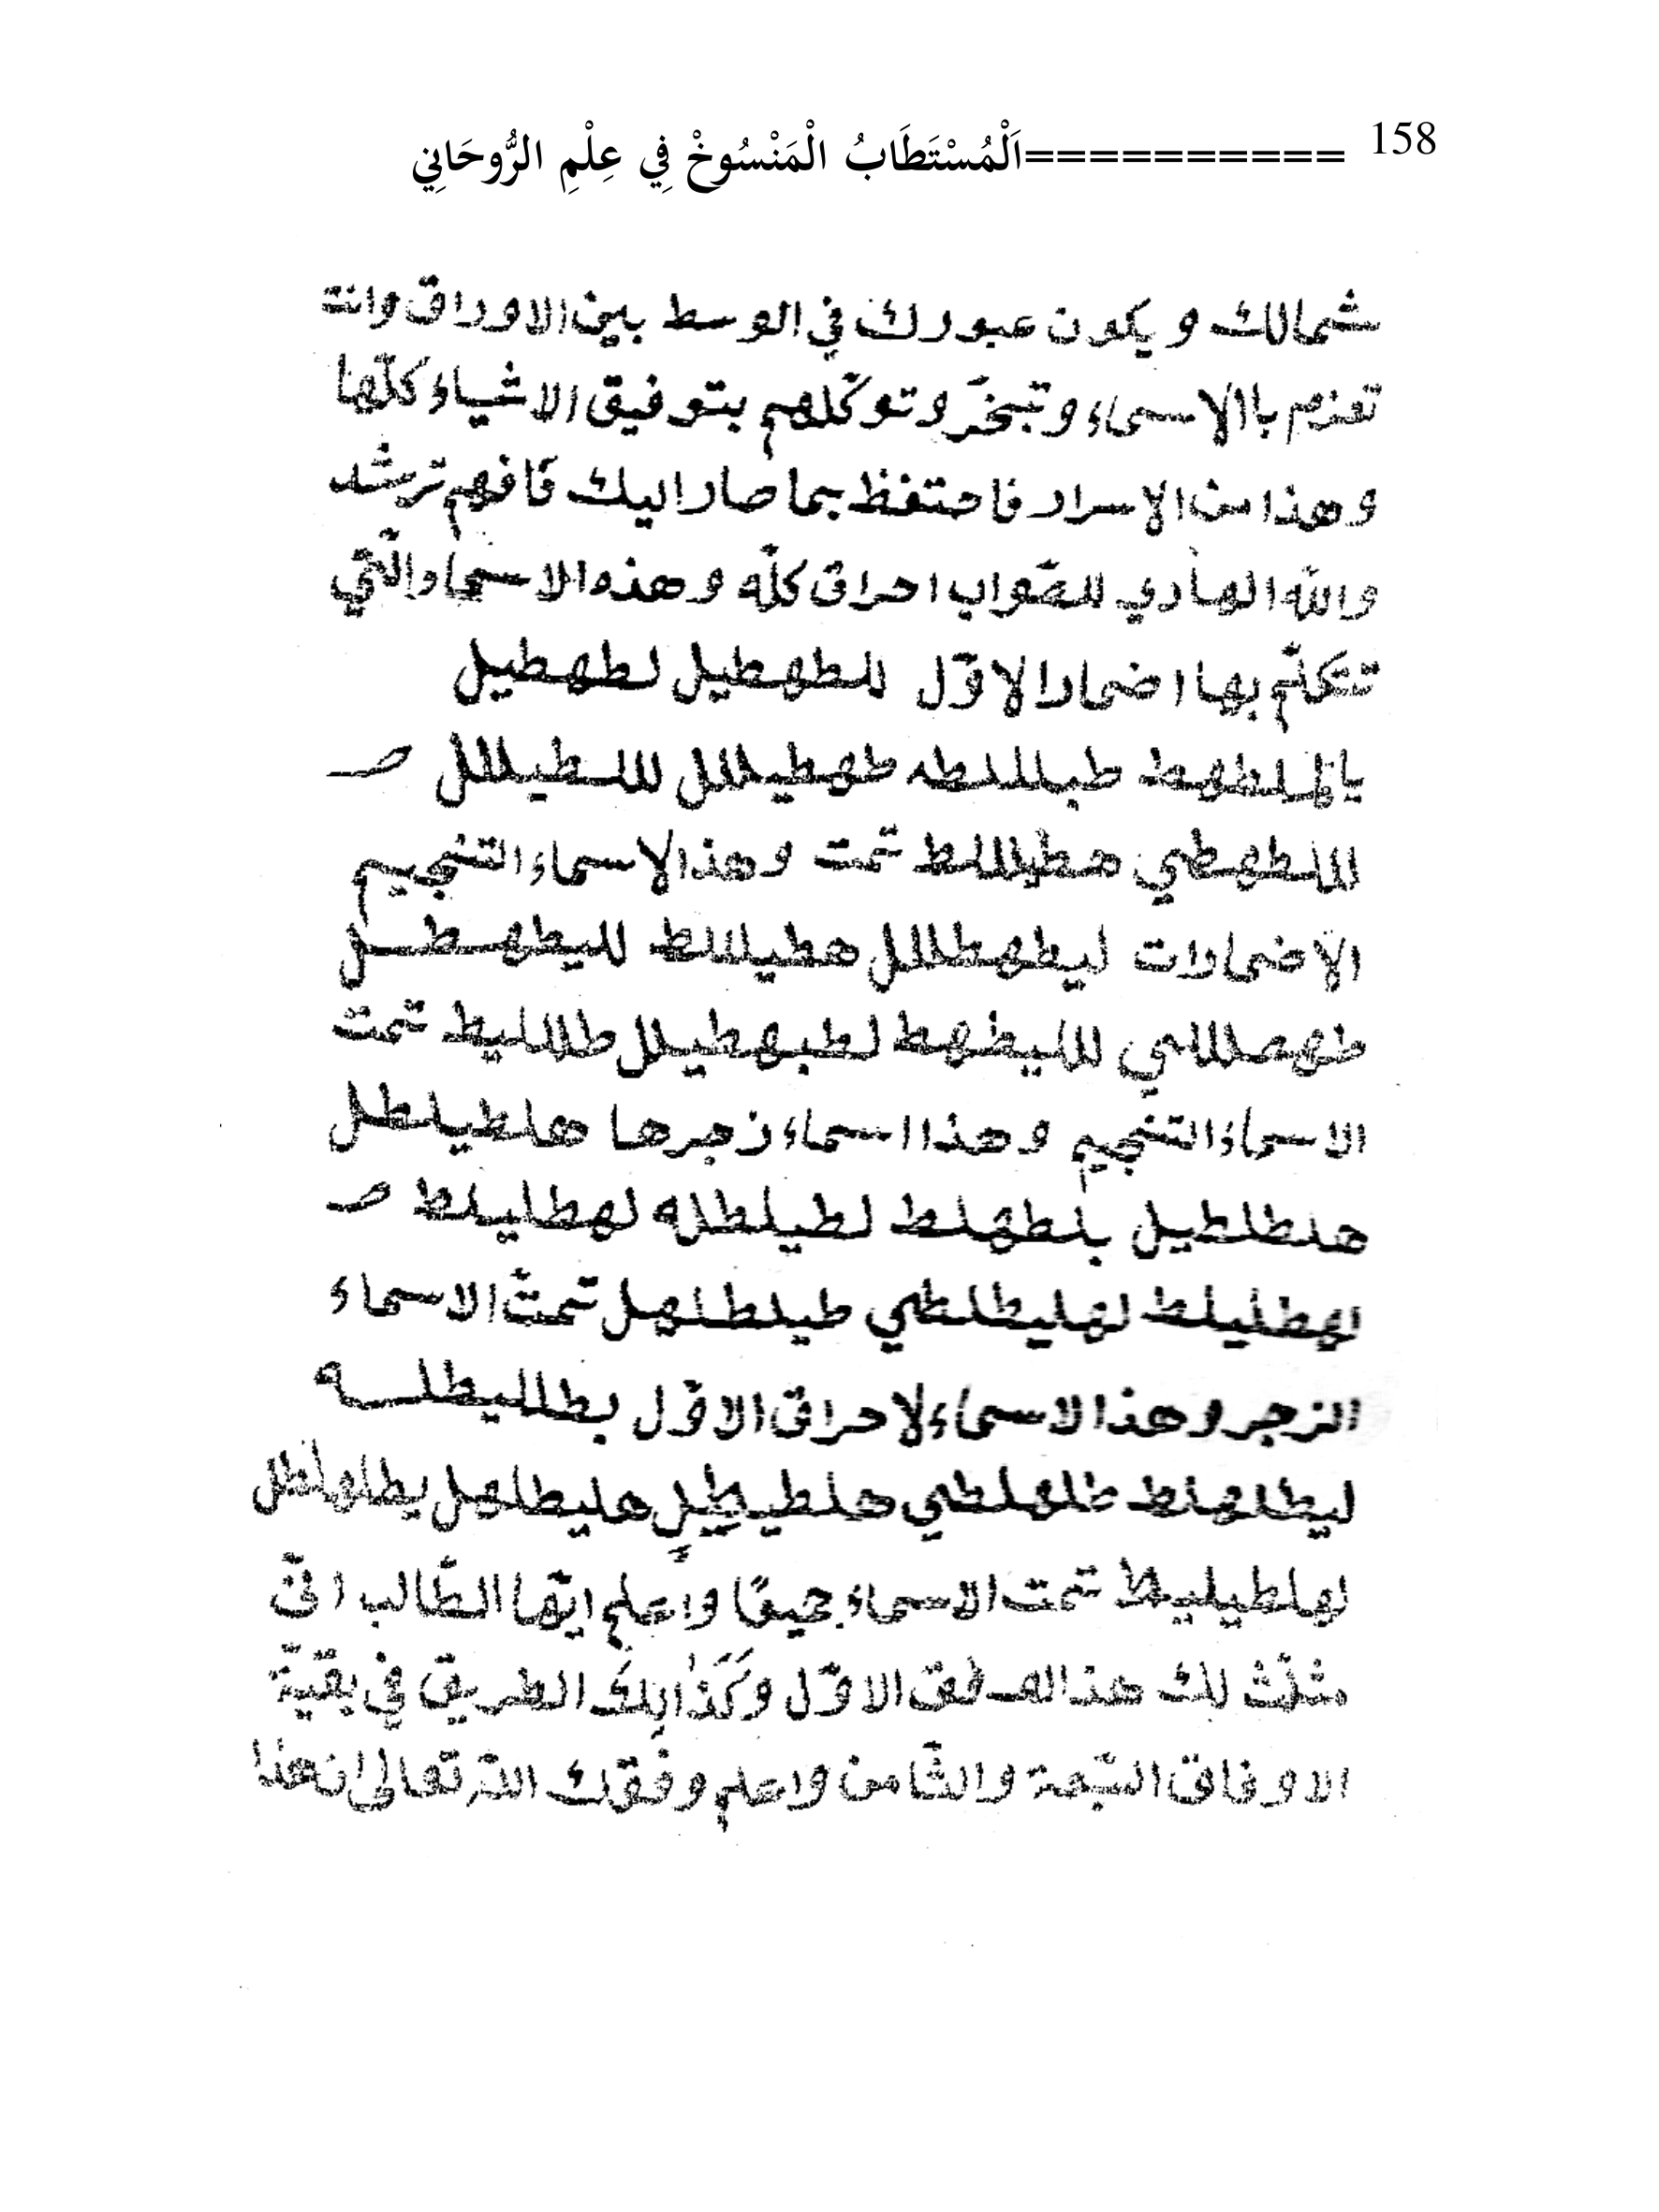 158 ==========اَلْمُسْتَطَابُ الْمَنْسُوخْ فِي عِلْمِ الرُّوحَانِي
شمالك ويكون عبورك في الوسط بين الاوراق وانت
تعزم باالاسماء وتبخّر وتوكّلهم بتوفيق الاشياء كلّها
وهذا من الاسرار فاحتفظ بما صار اليك فافهم ترشد
والله الهادي للصّواب احراق كلّه وهذه الاسماء الّتي
تتكلّم بها اضمار الاوّل للطهطيل لطهطيل
طبللطه طهطيللل للسطيللل صـ
للطهطي هطيللط تمت وهذا الاسماء التنجيم
الاضمارات ليطهطللل هطيللط لليطهطل
لليظهط لطبهطيلل طللليط تمت
الاسماء التنجيم وهذا اسماء زجرها هلطيلطل
هلطلطيل بلطهلط لطيلطله لهطليلط صـ
لهطليلط لهليطلطي طيلطلهل تمتّ الاسماء
الزجر وهذا الاسماء لاحراق الاوّل بطلليطلسه
ليطلهلط طلهلطي هليطلهل يطلهلطل
تمت الاسماء جميعًا واعلم ايّها الطّالب انّي
مثلّث لك هذا الوفق الاوّل وكَذٰالِكَ الطريق في بقيّة
الاوفاق السّبعة والثّامن واعلم وفّقك الله تعالى ان هذا